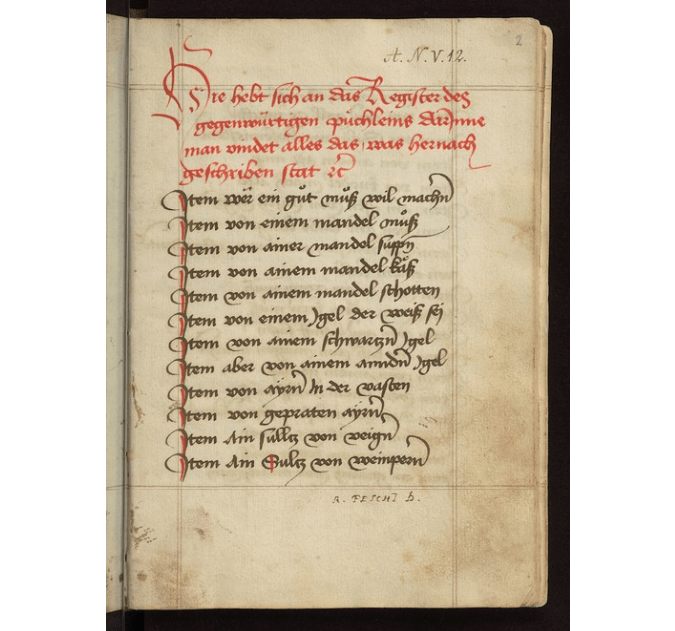 A. N. V. 12.
2
Hie hebt sich an das Register des
gegenwürtigen püchleins darinne
man vindet alles das was hernach
geschriben stat ꝛc
Item wer ein gůt můß wil machn̄
Item von einem mandel můß
Item von ainer mandel suppn̄
Item von ainem mandel käß
Item von ainem mandel schotten
Item von einem Jgel der weiß sej
Item von ainem schwartzn̄ Jgel
Item aber von ainem Jgel
Item von ayrn̄ In der vasten
Item von gepraten ayrn̄
Item Ain sulltz von veign̄
Item Ain Sultz von weinpern̄